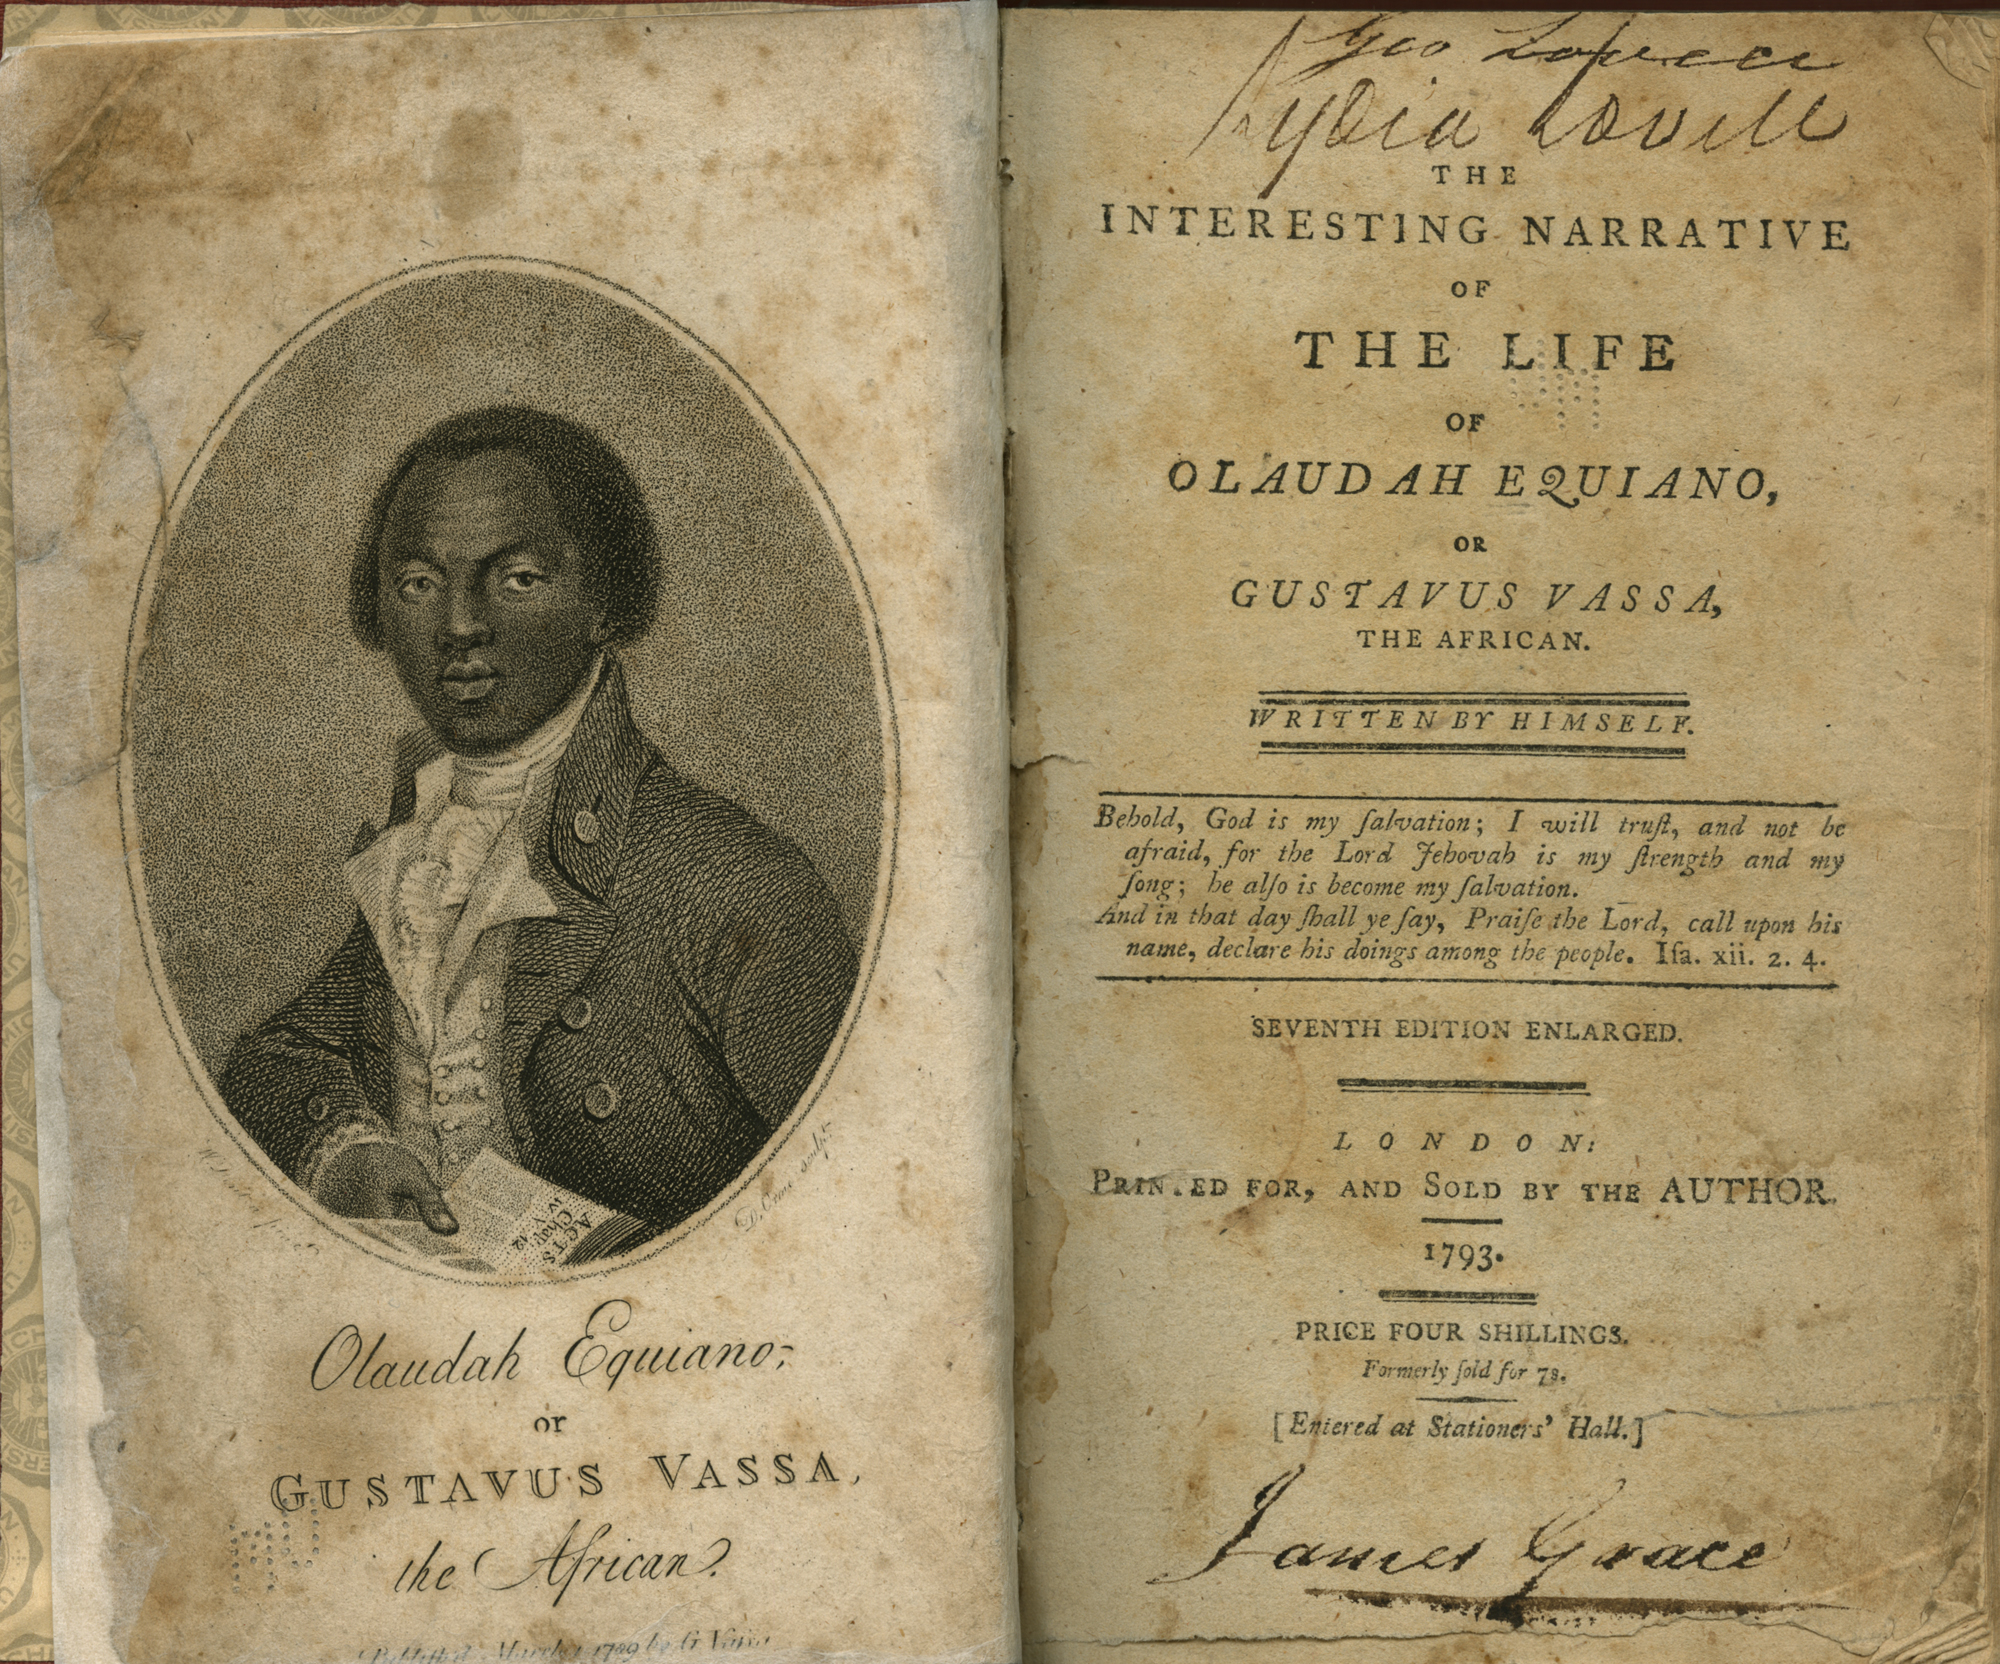 W Denton pinxt
D. Orme sculpt
ACTS
Chap. 12
W V
Olaudah Equiano;
or
GUSTAVUS VASSA,
the African.
Publish'd March 1 1789 by G. Vassa
Geo Lovell
Lydia Lovell
THE
INTERESTING NARRATIVE
OF
THE LIFE
OF
OLAUDAH EQUIANO,
OR
GUSTAVUS VASSA,
THE AFRICAN.
WRITTEN BY HIMSELF.
Behold, God is my ſalvation; I will truſt, and not be
afraid, for the Lord Jehovah is my ſtrength and my
ſong; he alſo is become my ſalvation.
And in that day ſhall ye ſay, Praiſe the Lord, call upon his
name, declare his doings among the people. Iſa. xii. 2. 4.
SEVENTH EDITION ENLARGED.
LONDON:
PRINTED FOR, AND SOLD BY THE AUTHOR.
1793.
PRICE FOUR SHILLINGS.
Formerly ſold for 7s.
[Entered at Stationers' Hall.]
James Grace